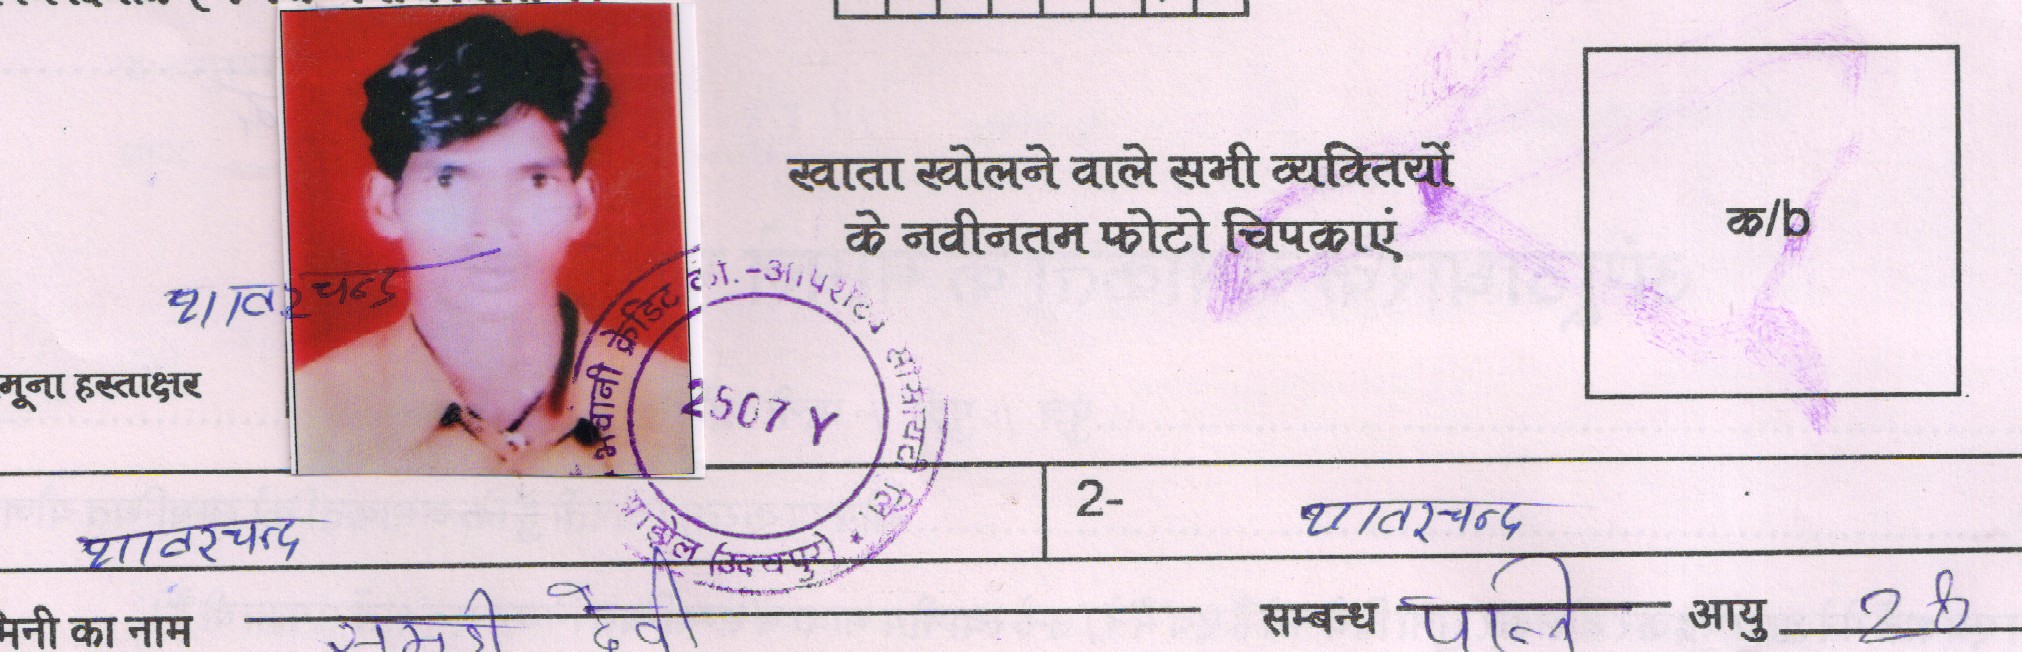 खाता खोलने वाले सभी व्यक्तियों
के नवीनतम फोटो चिपकाएं
क/b
थावरचन्द
मूना हस्ताक्षर
भवानी क्रेडिट को.-आपरेटिव सोसायटी लि.
2507 Y
(उदयपुर)
थावरचन्द
2- थावरचन्द
मिनी का नाम देवी सम्बन्ध पत्नि आयु 28